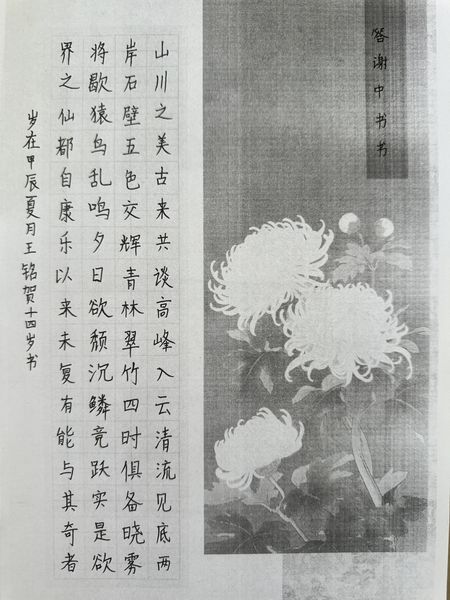 答谢中书书
山川之美古来共谈高峰入云清流见底两
岸石壁五色交辉青林翠竹四时俱备晓雾
将歇猿鸟乱鸣夕日欲颓沉鳞竟跃实是欲
界之仙都自康乐以来未复有能与其奇者
岁在甲辰夏月王铭贺十四岁书